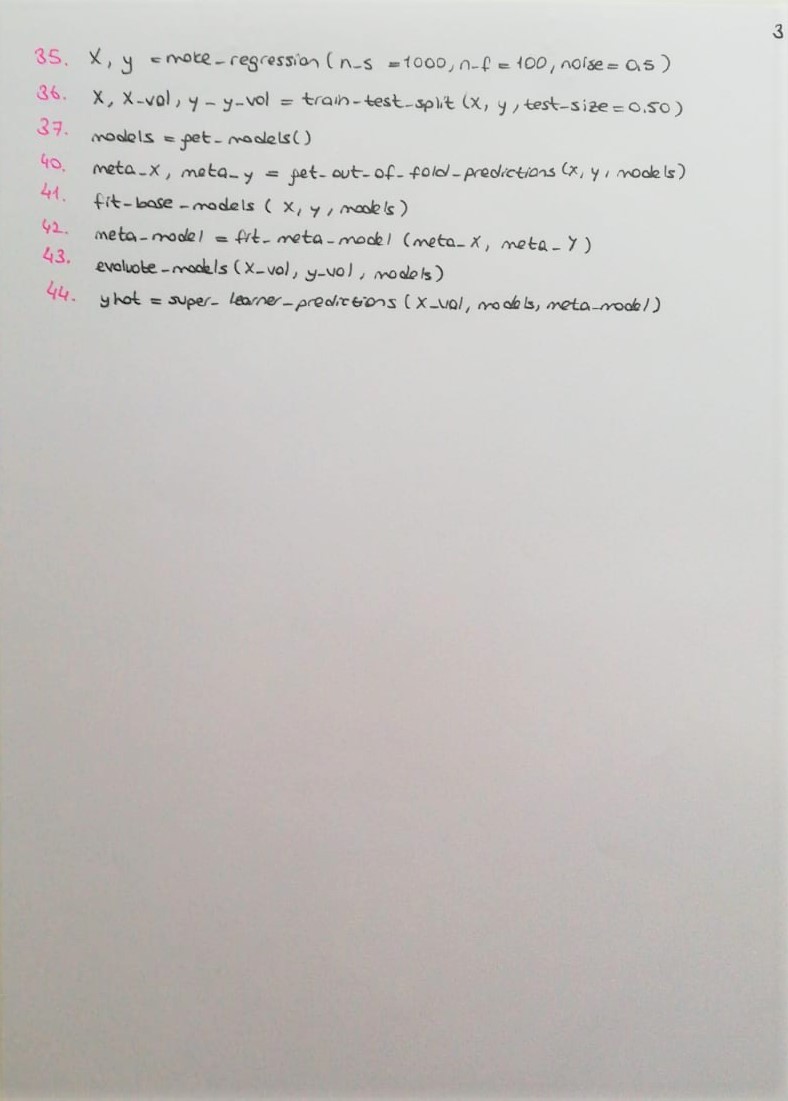 3
35. X, y = make_regression(n_s = 1000, n_f = 100, noise = 0.5)
36. X, X_val, y - y_val = train_test_split(X, y, test_size = 0.50)
37. models = get_models()
40. meta_X, meta_y = get_out_of_fold_predictions(X, y, models)
41. fit_base_models(X, y, models)
42. meta_model = fit_meta_model(meta_X, meta_Y)
43. evaluate_models(X_val, y_val, models)
44. yhat = super_learner_predictions(X_val, models, meta_model)